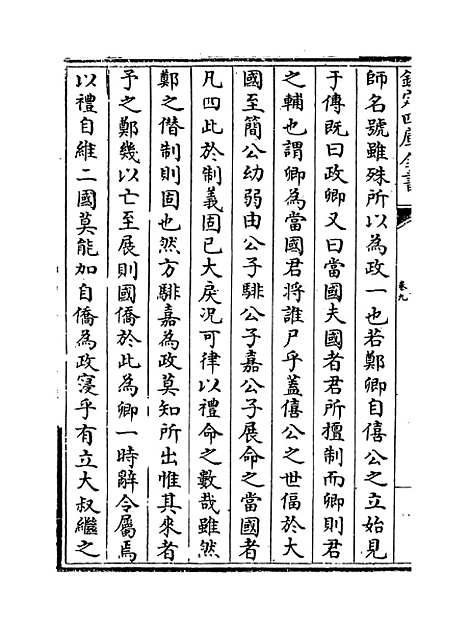 欽定四庫全書
卷九
師名號雖殊所以為政一也若鄭卿自僖公之立始見
于傳既曰政卿又曰當國夫國者君所擅制而卿則君
之輔也謂卿為當國君將誰尸乎蓋僖公之世偪於大
國至簡公幼弱由公子騑公子嘉公子展命之當國者
凡四此於制義固已大戾況可律以禮命之數哉雖然
鄭之僣制則固也然方騑嘉為政莫知所出惟其來者
予之鄭幾以亡至展則國僑於此為卿一時辭令屬焉
以禮自維二國莫能加自僑為政寖乎有立大叔繼之